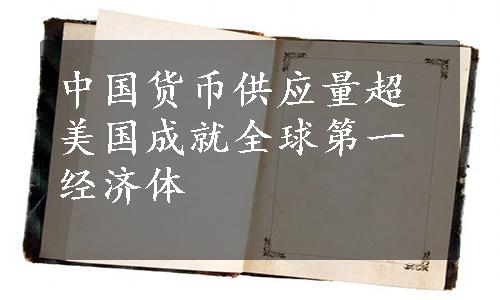 中国货币供应量超
美国成就全球第一
经济体